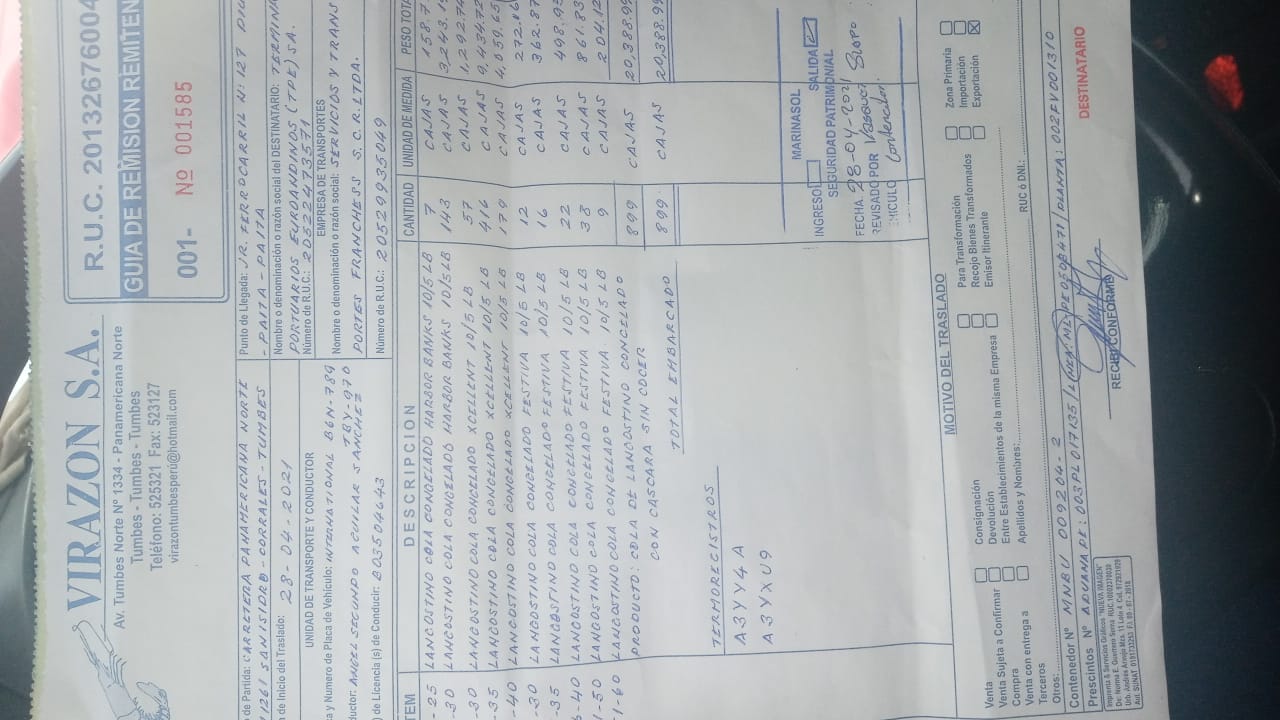 VIRAZON S.A.
Av. Tumbes Norte Nº 1334 - Panamericana Norte
Tumbes - Tumbes - Tumbes
Teléfono: 525321 Fax: 523127
virazontumbesperú@hotmail.com
R.U.C. 2013267600
GUIA DE REMISION REMITEN
001- Nº 001585
de Partida: CARRETERA PANAMERICANA NORTE
1261 SAN ISIDRO - CORRALES - TUMBES
de Inicio del Traslado: 28-04-2021
Punto de Llegada: JR. FERROCARRIL Nº 127
- PAITA - PAITA
Nombre o denominación o razón social del DESTINATARIO: TERMINA
PORTUARIOS EUROANDINOS (TPE) SA.
Número de R.U.C.: 20522473571
UNIDAD DE TRANSPORTE Y CONDUCTOR
a y Número de Placa de Vehículo: INTERNATIONAL B6N-789
TBY-970
ductor: ANGEL SEGUNDO AGUILAR SANCHEZ
de Licencia (s) de Conducir: B03504643
EMPRESA DE TRANSPORTES
Nombre o denominación o razón social: SERVICIOS Y TRANS
PORTES FRANCHESS S.C.R. LTDA.
Número de R.U.C.: 20529935049
TEM DESCRIPCION CANTIDAD UNIDAD DE MEDIDA PESO TOTA
-25 LANGOSTINO COLA CONGELADO HARBOR BANKS 10/5 LB 7 CAJAS 158.7
-30 LANGOSTINO COLA CONGELADO HARBOR BANKS 10/5 LB 143 CAJAS 3,243.1
-30 LANGOSTINO COLA CONGELADO XCELLENT 10/5 LB 57 CAJAS 1,292.7
-35 LANGOSTINO COLA CONGELADO XCELLENT 10/5 LB 416 CAJAS 9,434.72
-40 LANGOSTINO COLA CONGELADO XCELLENT 10/5 LB 179 CAJAS 4,059.65
-30 LANGOSTINO COLA CONGELADO FESTIVA 10/5 LB 12 CAJAS 272.16
-35 LANGOSTINO COLA CONGELADO FESTIVA 10/5 LB 16 CAJAS 362.87
-40 LANGOSTINO COLA CONGELADO FESTIVA 10/5 LB 22 CAJAS 498.95
1-50 LANGOSTINO COLA CONGELADO FESTIVA 10/5 LB 38 CAJAS 861.83
1-60 LANGOSTINO COLA CONGELADO FESTIVA 10/5 LB 9 CAJAS 204.12
PRODUCTO: COLA DE LANGOSTINO CONGELADO 899 CAJAS 20,388.99
CON CASCARA SIN COCER
TOTAL EMBARCADO 899 CAJAS 20,388.99
TERMOREGISTROS
A3YY4A
A3YXU9
MARINASOL
INGRESO SALIDA
SEGURIDAD PATRIMONIAL
FECHA 28-04-2021
REVISADO POR Vasquez
VEHICULO Contenedor
MOTIVO DEL TRASLADO
Venta
Venta Sujeta a Confirmar
Compra
Venta con entrega a
Terceros
Consignación
Devolución
Entre Establecimientos de la misma Empresa
Para Transformación
Recojo Bienes Transformados
Emisor Itinerante
Zona Primaria
Importación
Exportación
Apellidos y Nombres: RUC ó DNI.:
Otros:
Contenedor Nº MNBU 009204-2
Prescintos Nº ADUANA PE: 003PL017135 / LINEA: / PLANTA: 002FV001310
Imprenta & Servicios Gráficos "NUEVA IMAGEN"
RECIBI CONFORME
DESTINATARIO